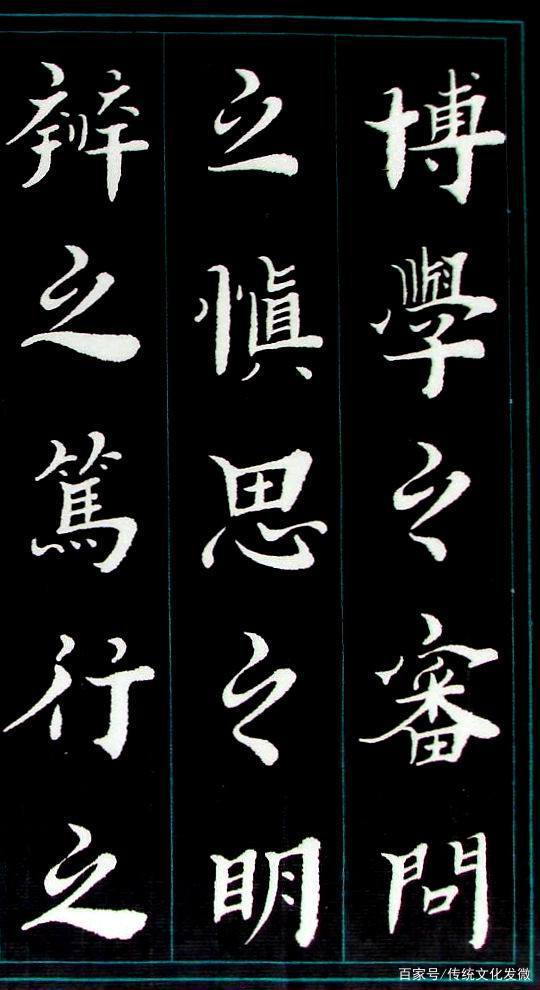 博學之審問
之慎思之明
辨之篤行之
百家号/传统文化发微